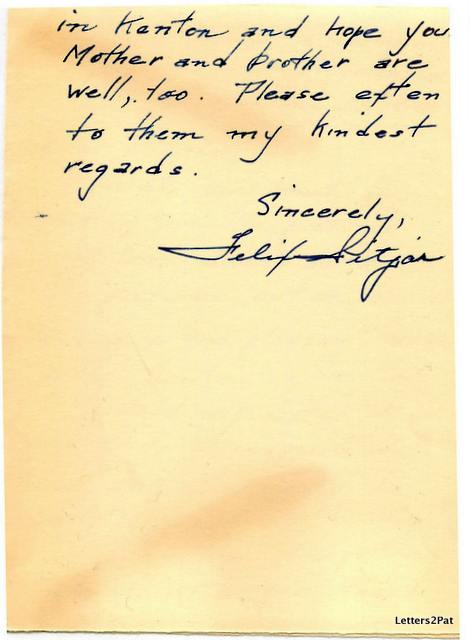 in Kenton and hope you
Mother and brother are
well, too. Please exten
to them my kindest
regards.
Sincerely,
Felix Sitjar
Letters2Pat